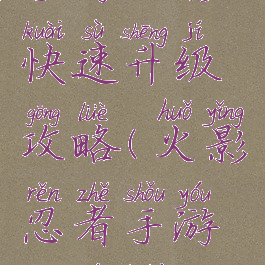 kuài sù shēng jí
快速升级
gōng lüè huǒ yǐng
攻略(火影
rěn zhě shǒu yóu
忍者手游